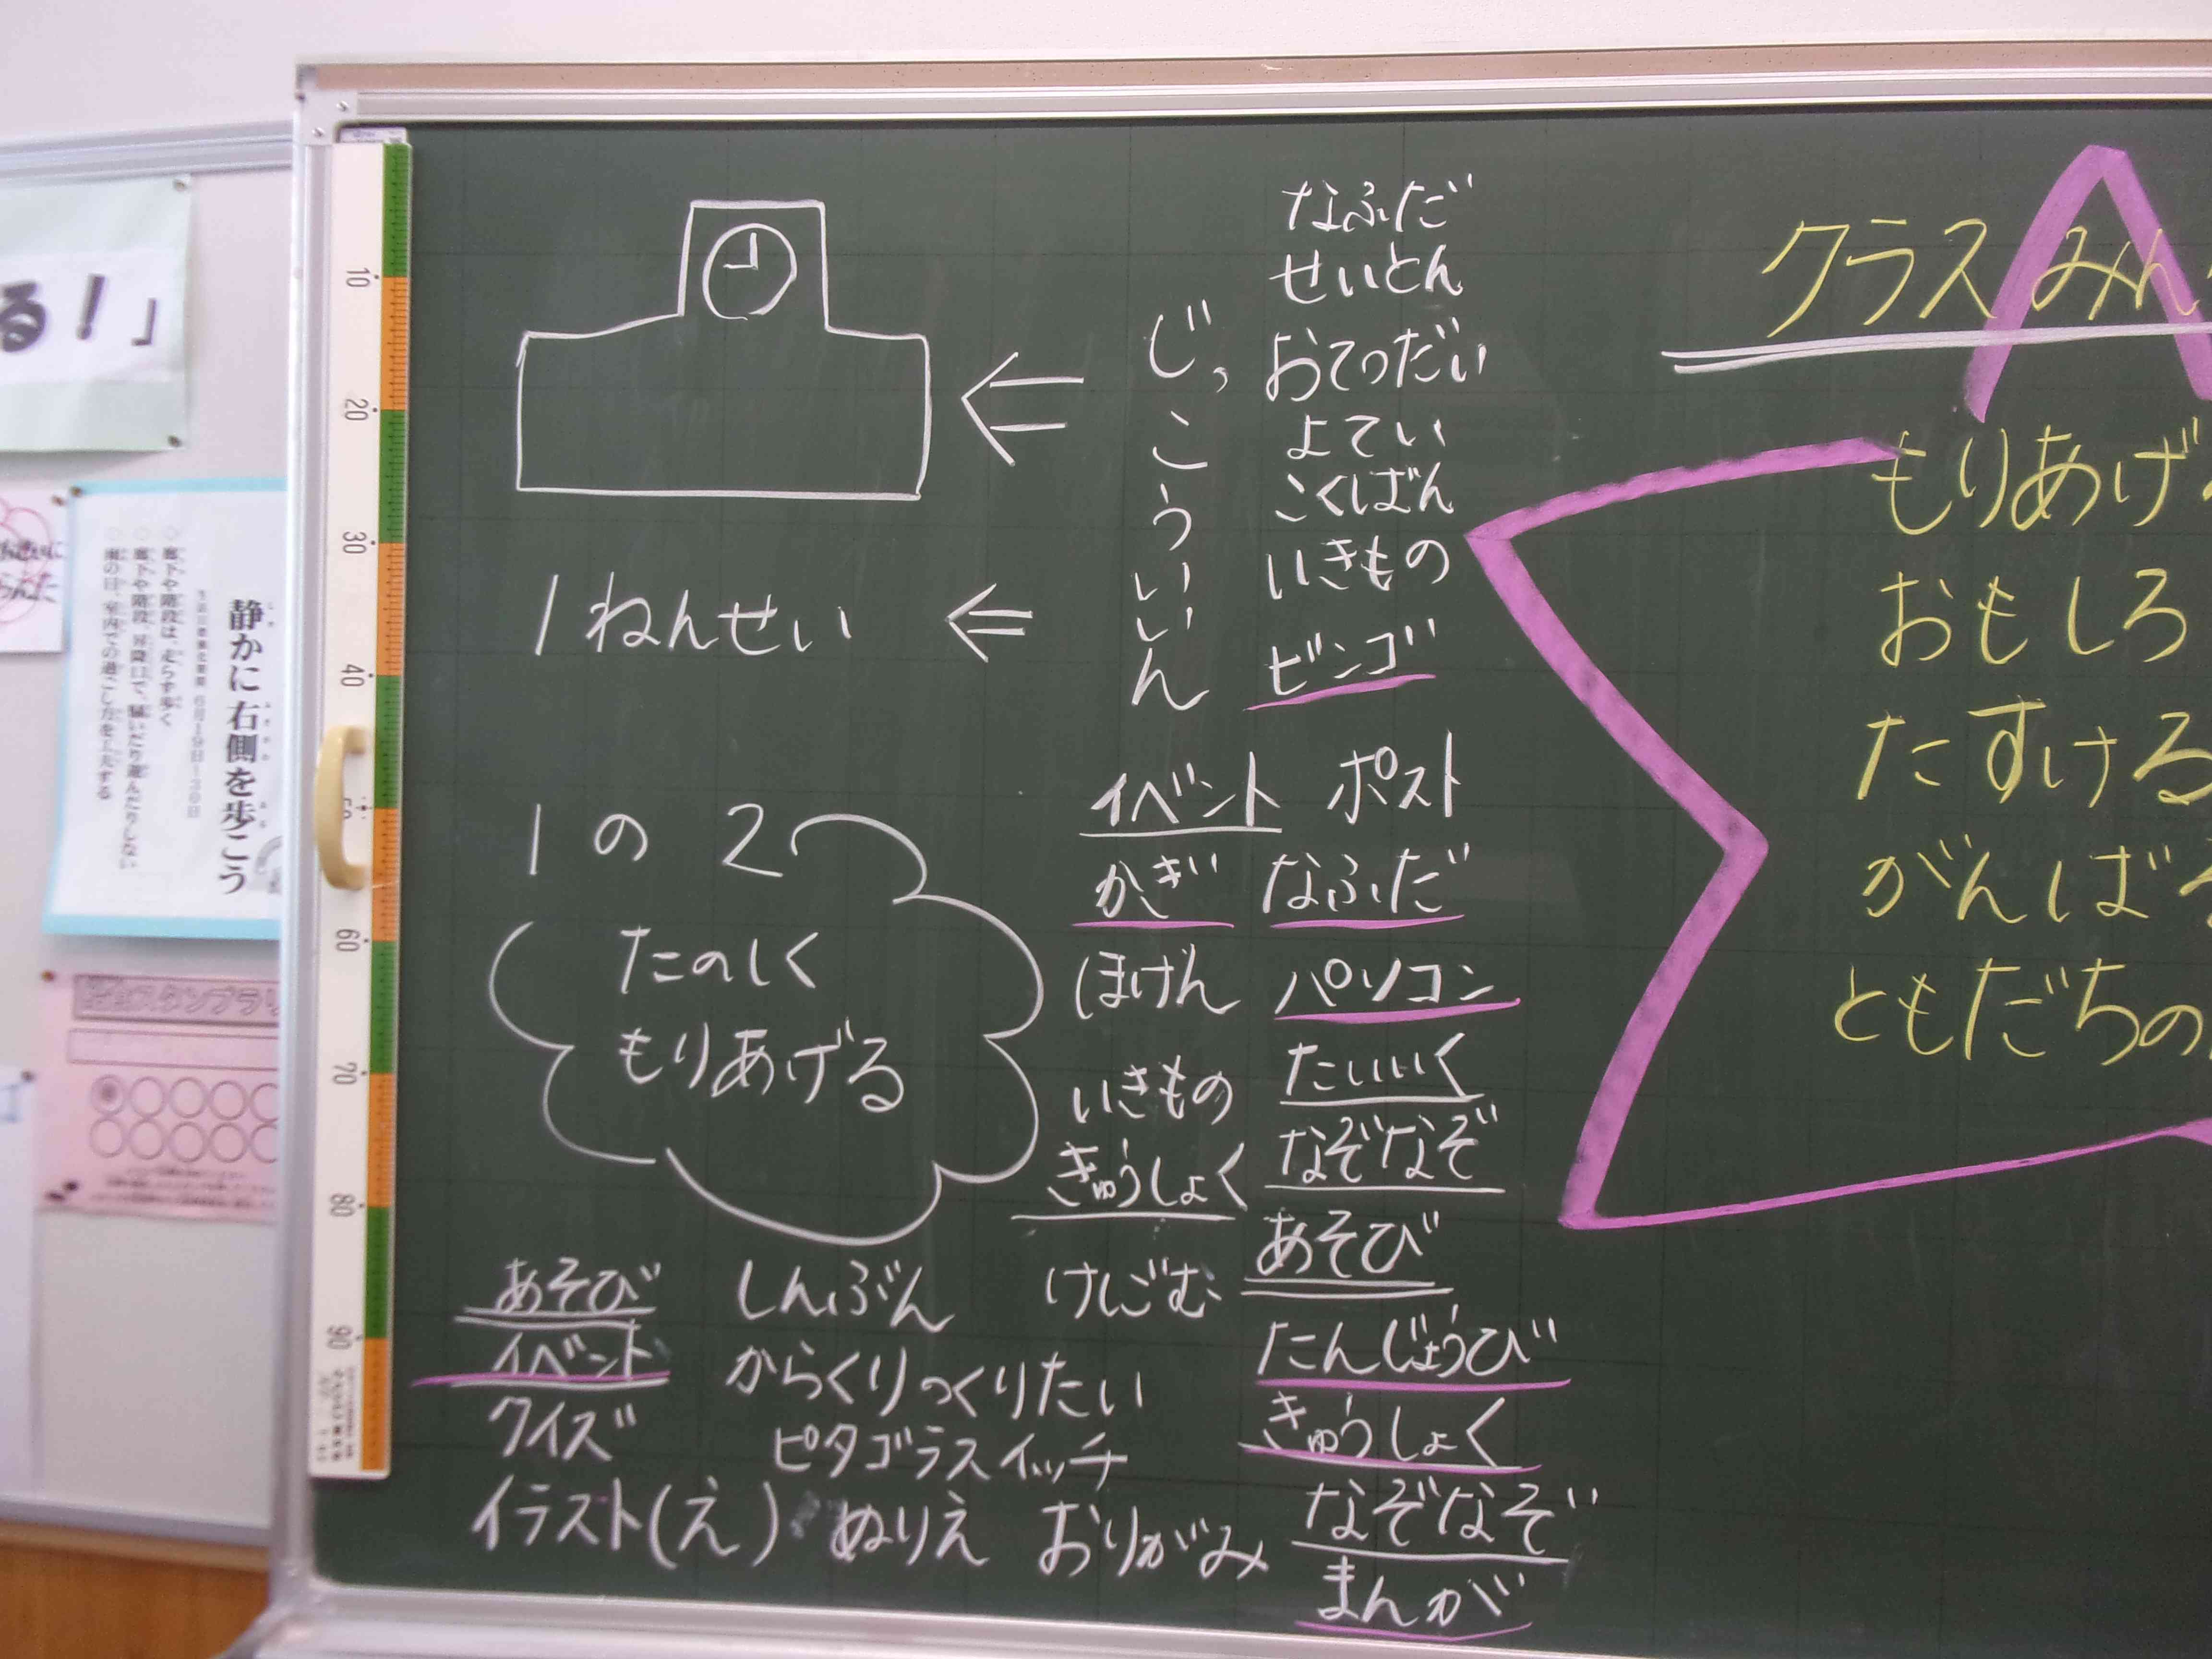 る！」
静かに右側を歩こう
○廊下や階段は、走らず歩く
10
20
30
40
60
70
80
90
じっこういいん
なふだ
せいとん
おてつだい
よてい
こくばん
いきもの
ビンゴ
1ねんせい
イベント ポスト
かぎ なふだ
ほけん パソコン
いきもの たいいく
きゅうしょく なぞなぞ
けしごむ あそび
たんじょうび
きゅうしょく
なぞなぞ
まんが
1の2
たのしく
もりあげる
あそび しんぶん
イベント からくりつくりたい
クイズ ピタゴラスイッチ
イラスト(え) ぬりえ おりがみ
クラスみん
もりあげ
おもしろ
たすける
がんばる
ともだちの